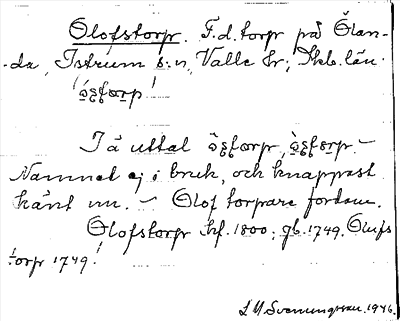 Olofstorp. F.d. torp på Ölan-
da, Istrum s:n, Valle hr; Skb. län.
I ä uttal
Namnet ej i bruk, och knappast
känt nu. - Olof torpare fordom.
Olofstorp hf. 1800; gb. 1749. Olufs
torp 1749.
L M Svenungsson. 1946.